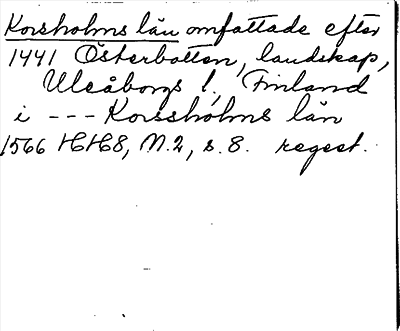 Korsholms län omfattade efter
1441 Österbotten, landskap,
Uleåborgs l., Finland
i --- Korssholms län
1566 HH8, N.2, s.8. regest.